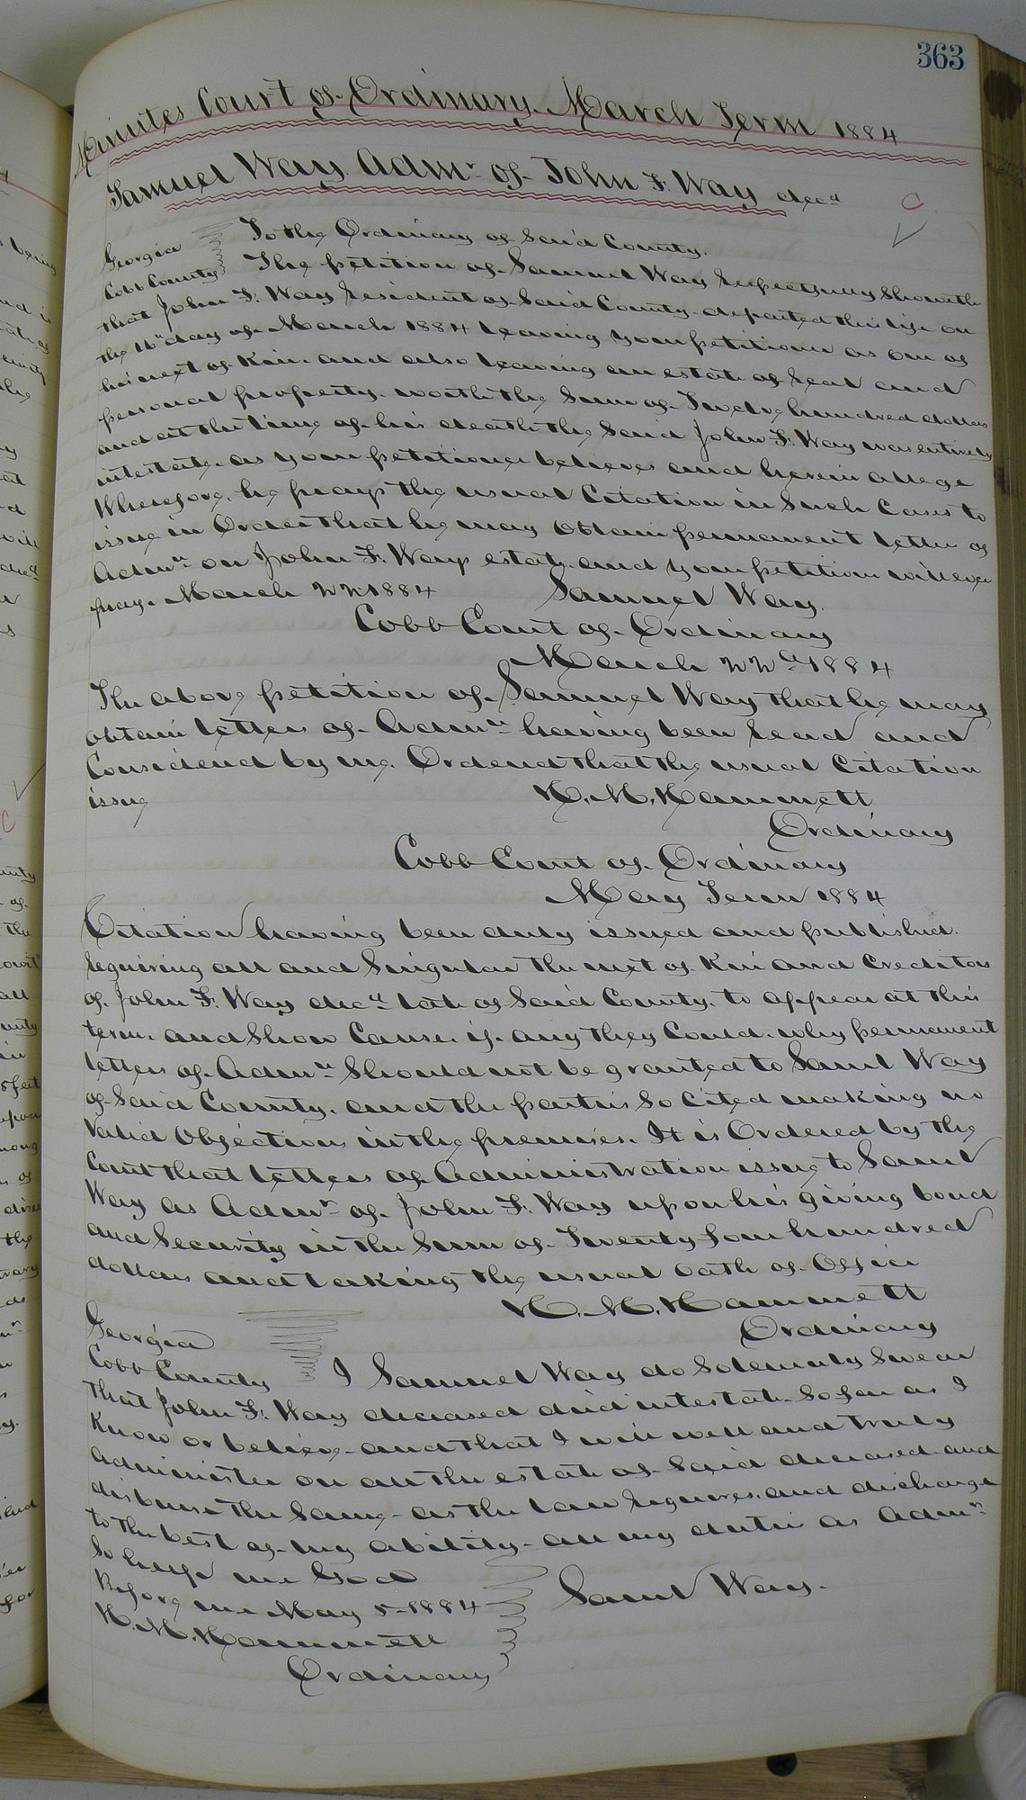 363
Minutes Court of Ordinary. March Term 1884
Samuel Way Admr of John F. Way decd
C
Georgia
Cobb County
To the Ordinary of Said County.
The petition of Samuel Way Respectfully Showeth
that John F. Way Resident of Said County departed this life on
the 16th day of March 1884 Leaving your petitioner as one of
his next of Kin. and also Leaving an estate of Real and
personal property. worth the Sum of Twelve hundred dollars
and at the time of his death the Said John F. Way was entirely
intestate. as your petitioner believes and herein allege
Wherefore. he prays the usual Citation in Such Cases to
issue in Order that he may Obtain permanent letters of
Admn on John F. Ways estate. and your petitioner will ever
pray. March 22 1884 Samuel Way.
Cobb Court of Ordinary
March 22d 1884
The above petition of Samuel Way that he may
obtain letters of Admn having been Read and
Considered by me. Ordered that the usual Citation
issue H. M. Hammett
Ordinary
Cobb Court of Ordinary
May Term 1884
Citation having been duly issued and published.
Requiring all and Singular the next of Kin and Creditors
of John F. Way decd late of Said County. to appear at this
term. and Show Cause. if. any they Could. why permanent
letters of Admn Should not be granted to Saml Way
of Said County. and the parties So Cited making no
Valid Objections in the premises. It is Ordered by the
Court that Letters of Administration issue to Saml
Way as Admr of John F. Way upon his giving bond
and Security in the Sum of Twenty four hundred
dollars and taking the usual oath of Office
H. M. Hammett
Ordinary
Georgia
Cobb County I Samuel Way do Solemnly Swear
that John F. Way deceased died intestate So far as I
Know or believe and that I will well and truly
administer on all the estate of Said deceased and
disburse the Same as the Law Requires. and discharge
to the best of my ability all my duties as Admr
So help me God
Before me May 5 1884 Saml Way.
H. M. Hammett
Ordinary